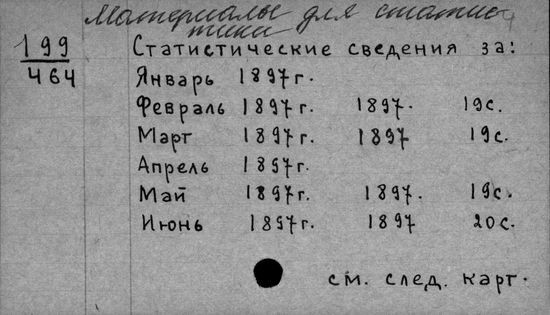 Материалы для статис
тики
199
464
Статистические сведения за:
Январь 1897г.
Февраль 1897г. 1897. 19с.
Март 1897г. 1897 19с.
Апрель 1897г.
Май 1897г. 1897. 19с.
Июнь 1897г. 1897 20с.
см. след. карт.